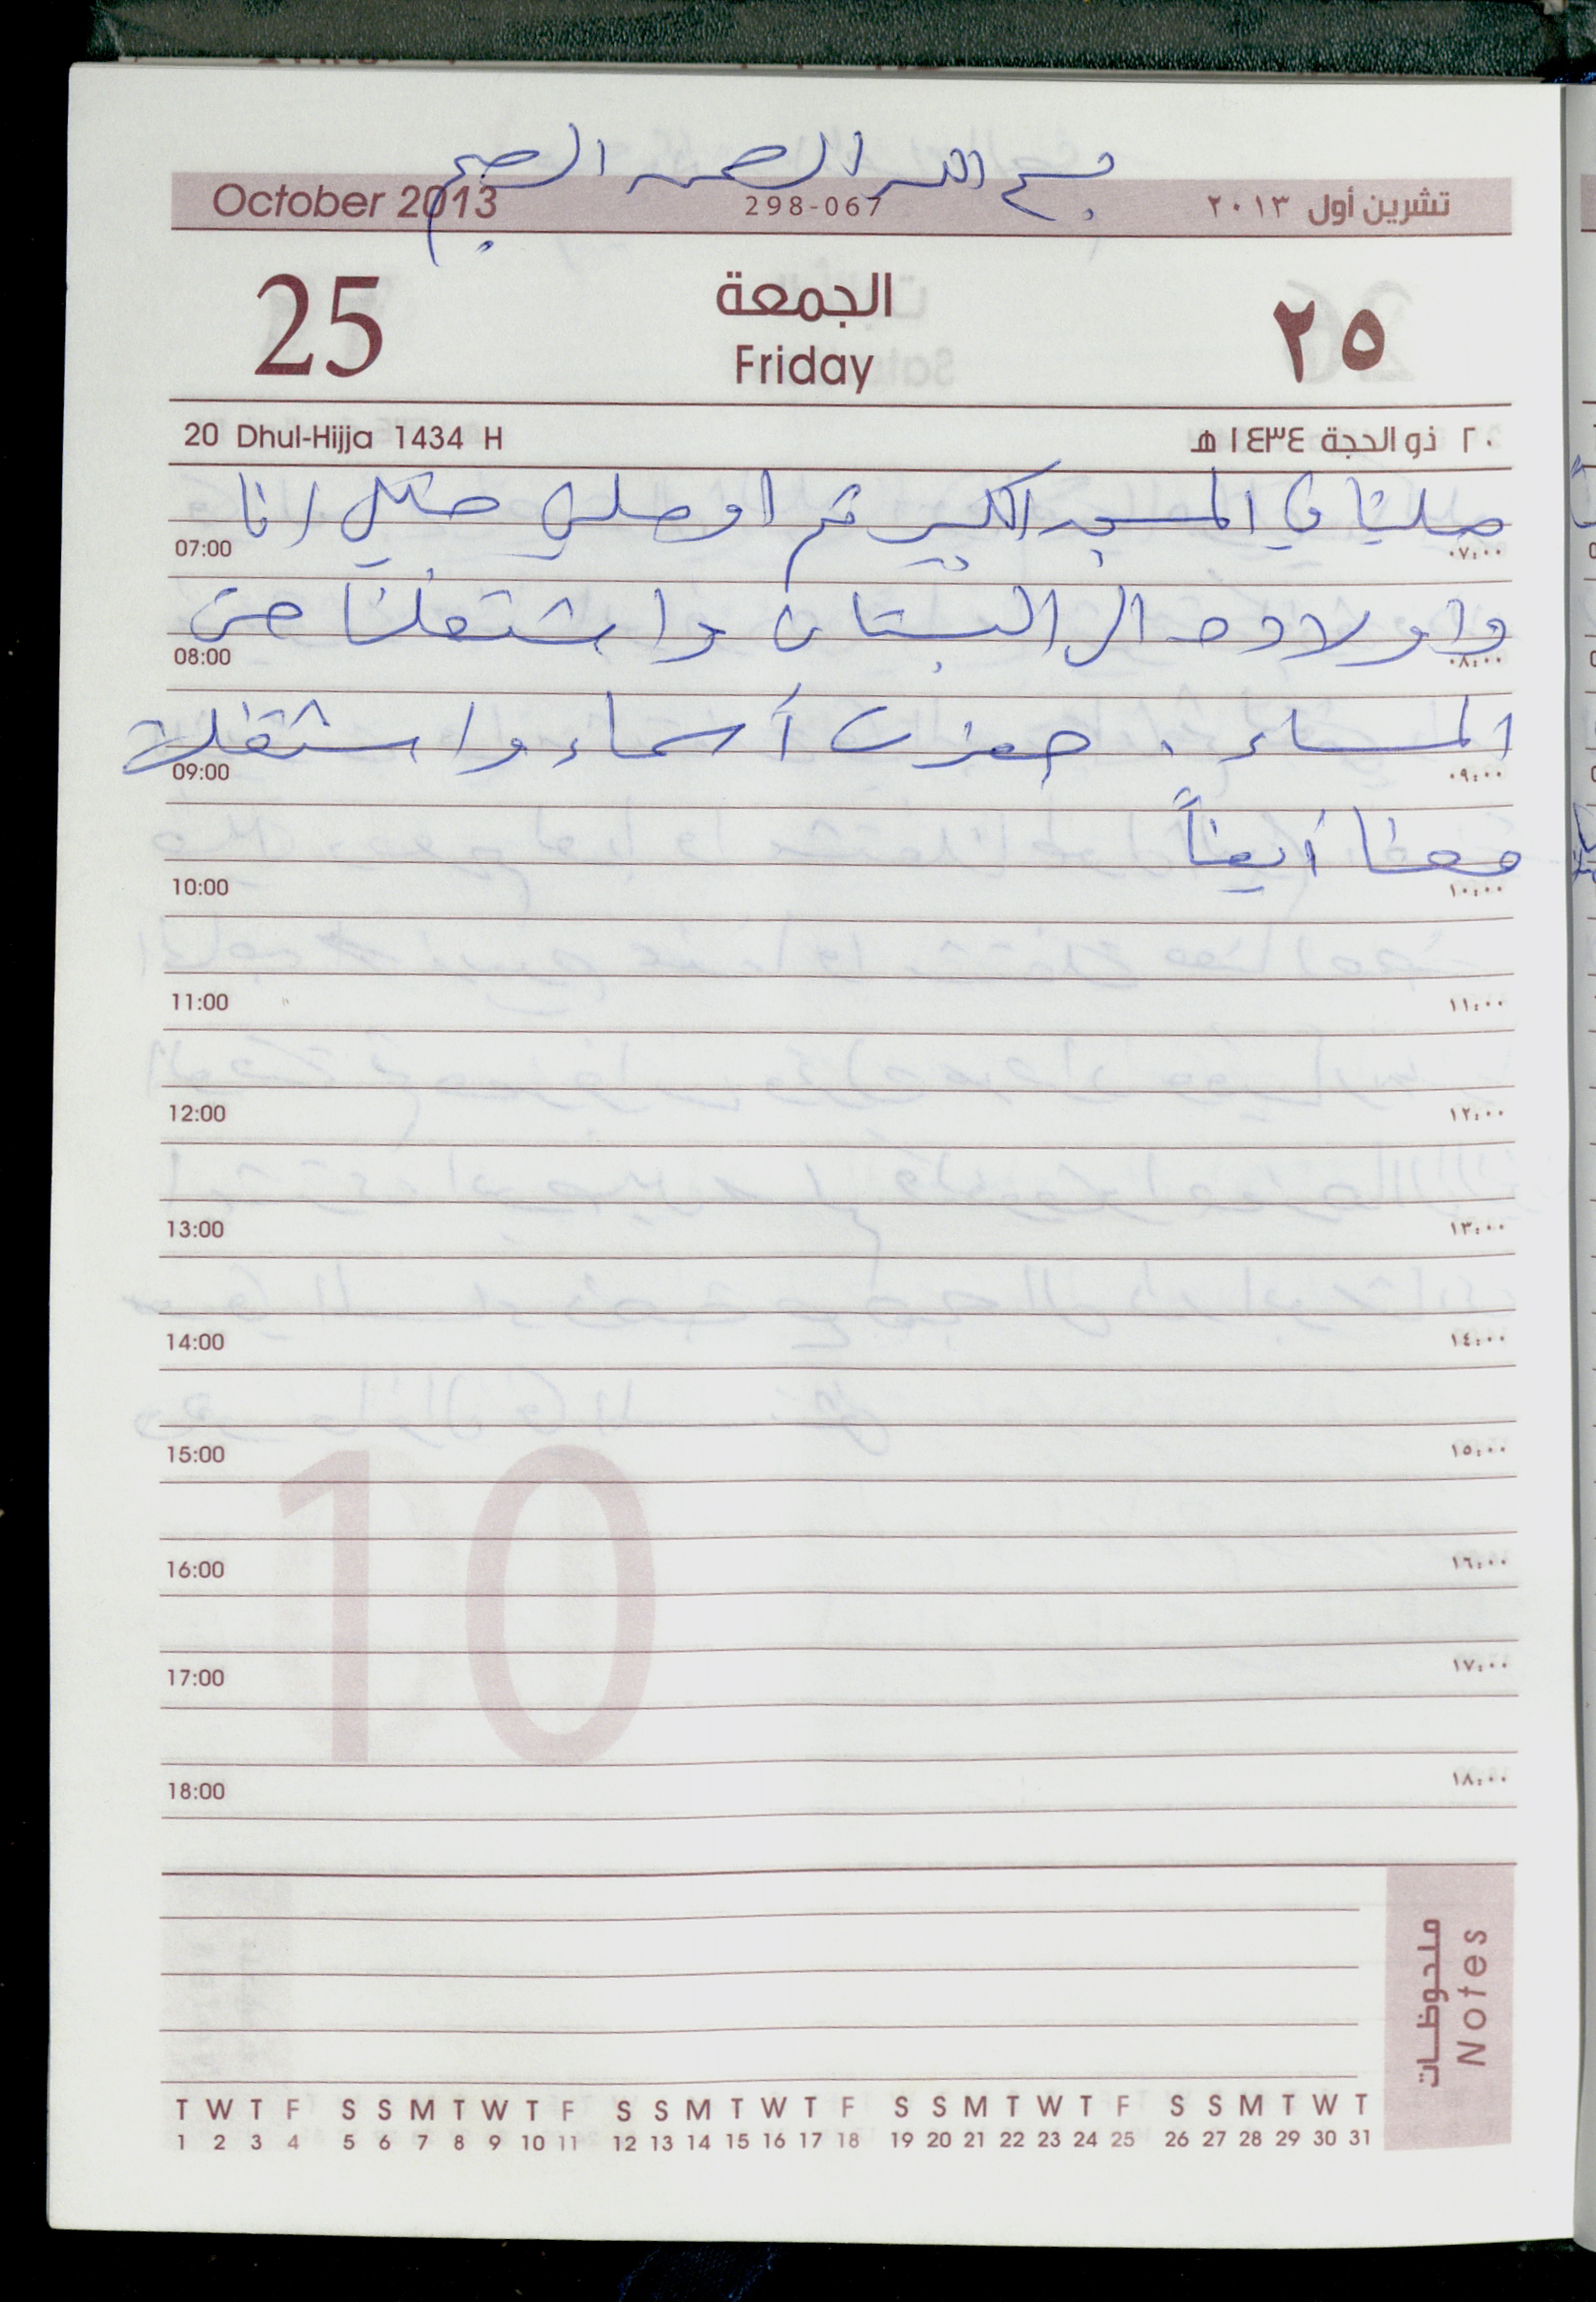 بسم الله الرحمن الرحيم
October 2013 298-067 تشرين أول ٢٠١٣
25 الجمعة ٢٥
Friday
20 Dhul-Hijja 1434 H ٢٠ ذو الحجة ١٤٣٤ هـ
صلينا في المسجد الكبير ثم اوصلني انا
07:00 ٠٧:٠٠
واولاده الى البستان واشتغلنا حتى
08:00 ٠٨:٠٠
المساء . حضرت أسماء واشتغلت
09:00 ٠٩:٠٠
معنا أيضاً
10:00 ١٠:٠٠
11:00 ١١:٠٠
12:00 ١٢:٠٠
13:00 ١٣:٠٠
14:00 ١٤:٠٠
15:00 ١٥:٠٠
10
16:00 ١٦:٠٠
17:00 ١٧:٠٠
18:00 ١٨:٠٠
ملحوظات
Notes
T W T F S S M T W T F S S M T W T F S S M T W T F S S M T W T
1 2 3 4 5 6 7 8 9 10 11 12 13 14 15 16 17 18 19 20 21 22 23 24 25 26 27 28 29 30 31